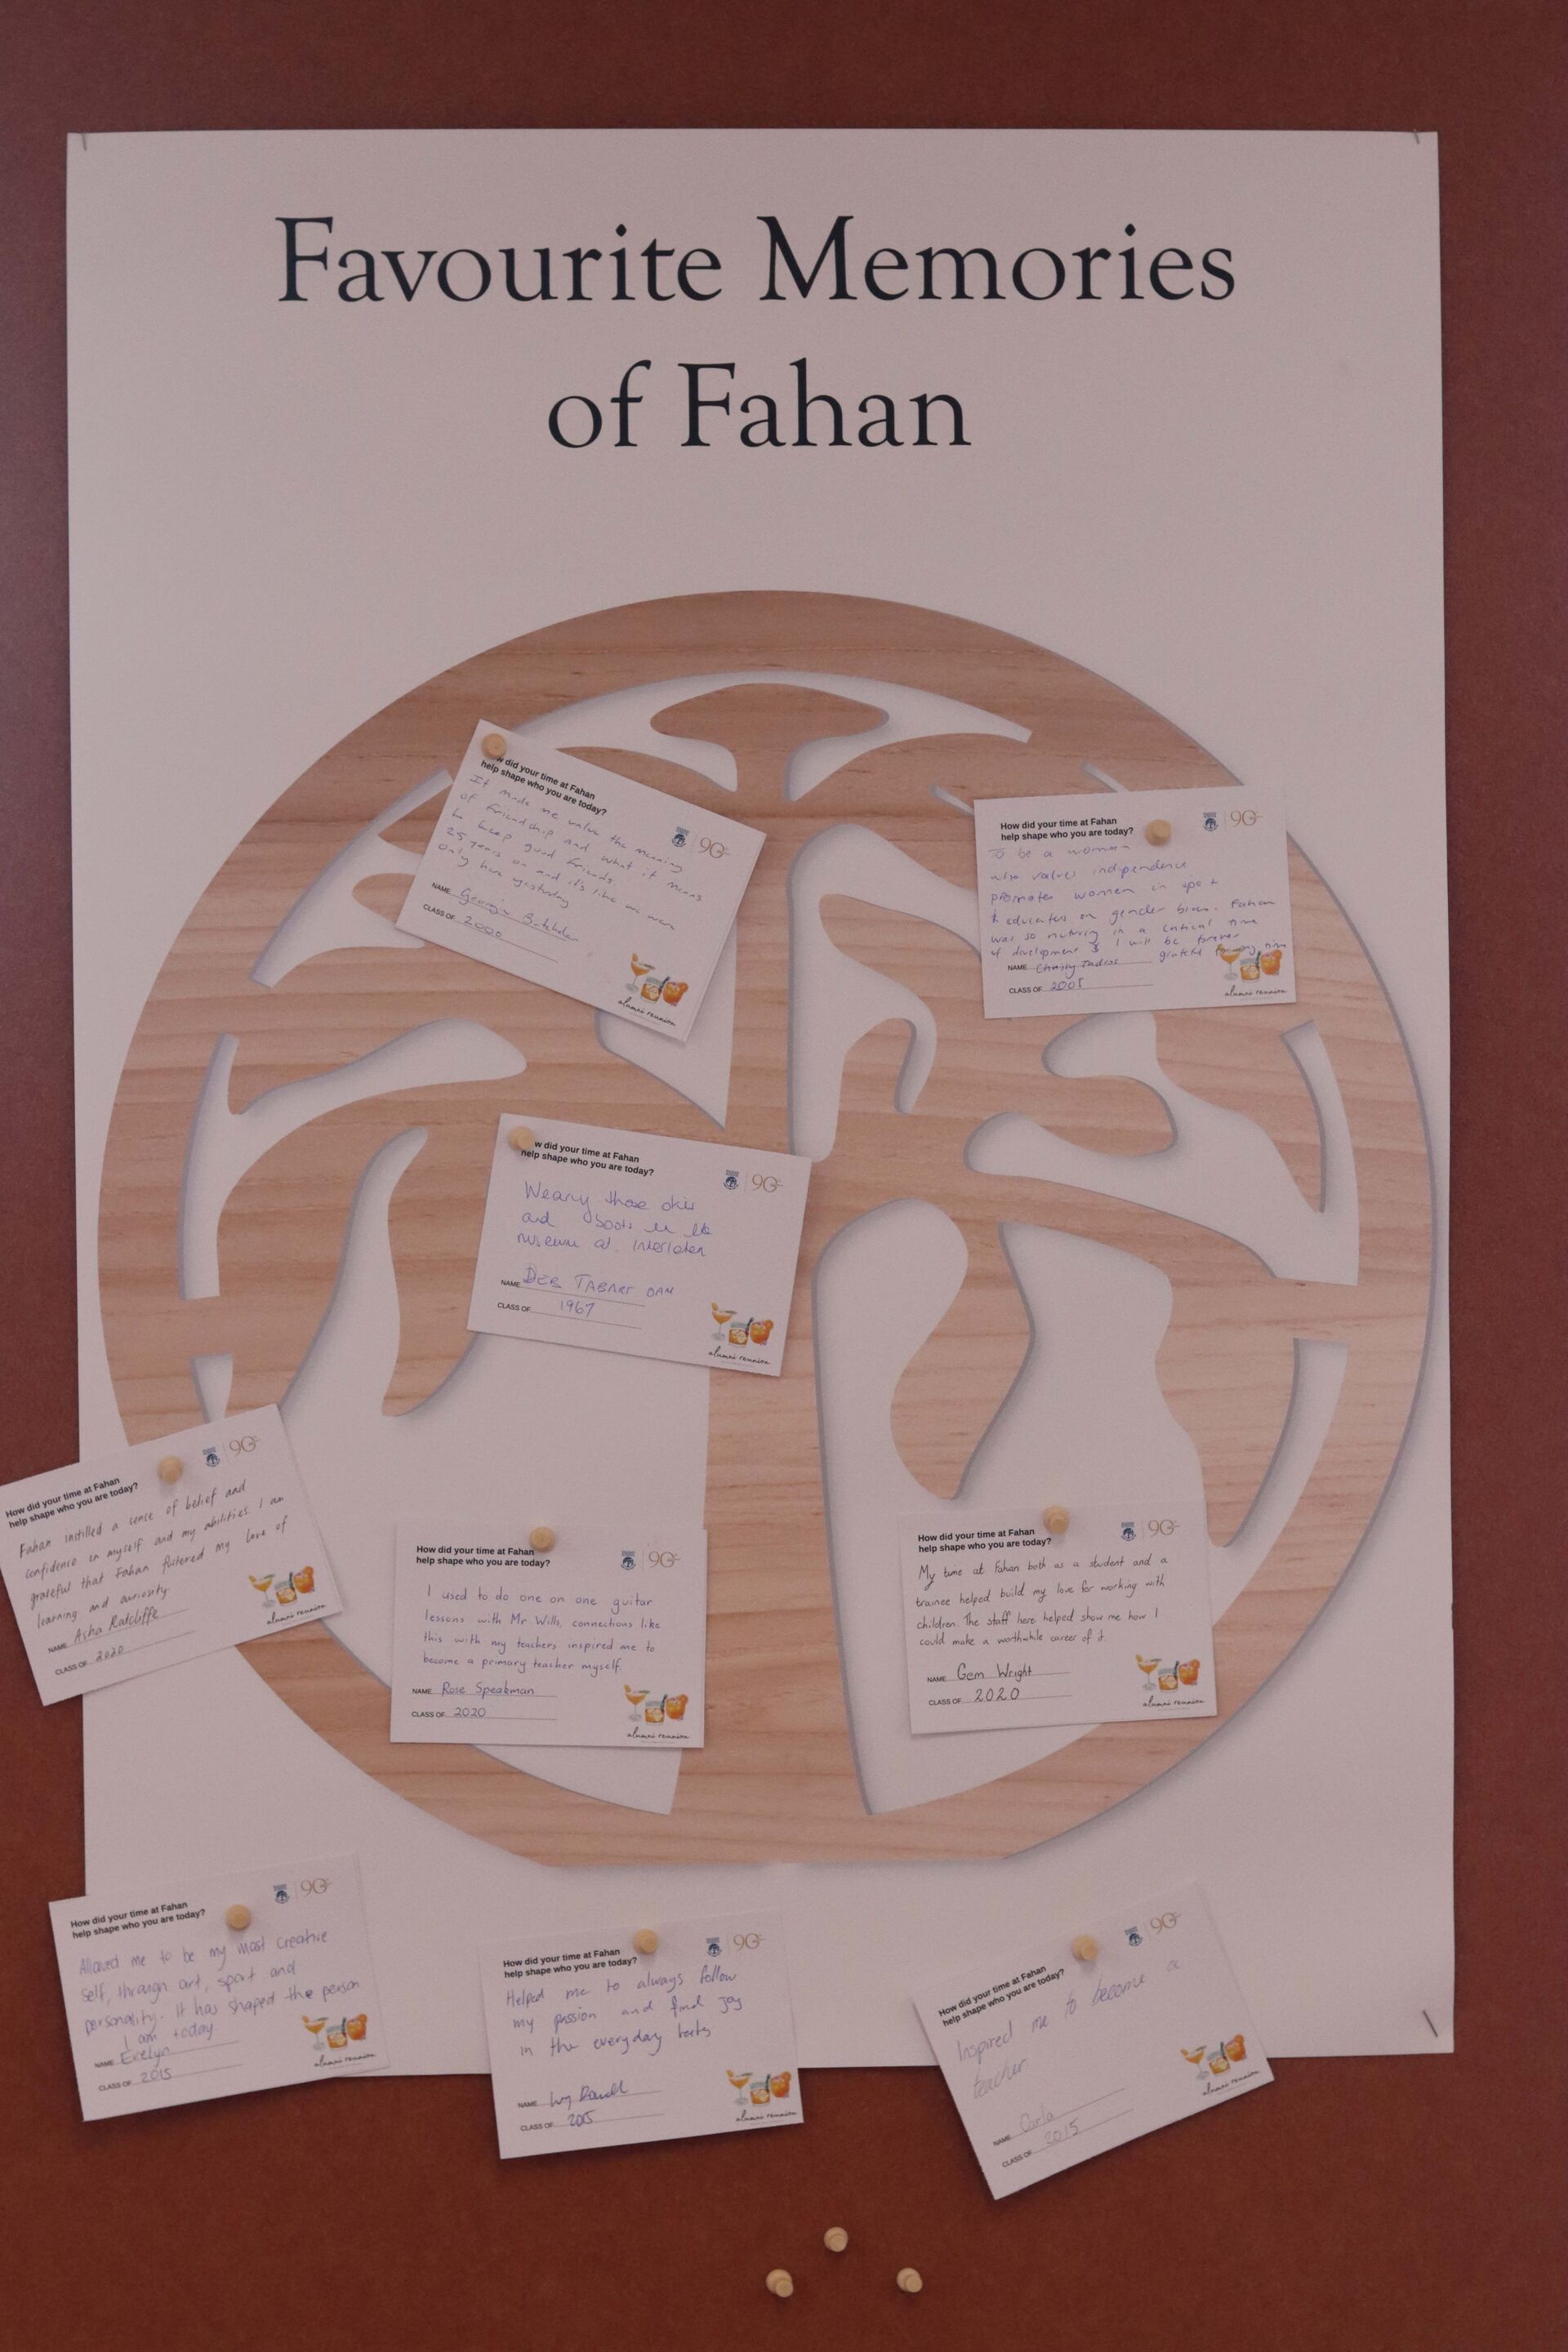 Favourite Memories
of Fahan
w did your time at Fahan
help shape who you are today?
It made me value the meaning
of friendship and what it means
to keep good friends.
25 years on and it's like we were
only here yesterday
NAME Georgia
CLASS OF 2000
90
alumni reunion
How did your time at Fahan
help shape who you are today?
To be a women
who values independence
promotes women in sport
& educates on gender bias. Fahan
was so nuturing in a critical time
of development & I will be forever
grateful for my time
NAME Christy Tadros
CLASS OF 2005
90
alumni reunion
w did your time at Fahan
help shape who you are today?
those skis
and boots in the
museum at Interlaken
NAME DEB TABART OAM
CLASS OF 1967
90
alumni reunion
How did your time at Fahan
help shape who you are today?
Fahan instilled a sense of belief and
confidence in myself and my abilities. I am
grateful that Fahan fostered my love of
learning and curiosity.
NAME Asha Ratcliffe
CLASS OF 2020
90
alumni reunion
How did your time at Fahan
help shape who you are today?
I used to do one on one guitar
lessons with Mr Wills, connections like
this with my teachers inspired me to
become a primary teacher myself.
NAME Rose Speakman
CLASS OF 2020
90
alumni reunion
How did your time at Fahan
help shape who you are today?
My time at Fahan both as a student and a
trainee helped build my love for working with
children. The staff here helped show me how I
could make a worthwhile career of it.
NAME Gem Wright
CLASS OF 2020
90
alumni reunion
How did your time at Fahan
help shape who you are today?
Allowed me to be my most creative
self, through art, sport and
personality. It has shaped the person
I am today
NAME Evelyn
CLASS OF 2015
90
alumni reunion
How did your time at Fahan
help shape who you are today?
Helped me to always follow
my passion and find joy
in the everyday
NAME
CLASS OF 2015
90
alumni reunion
How did your time at Fahan
help shape who you are today?
Inspired me to become a
teacher
NAME Carla
CLASS OF 2015
90
alumni reunion